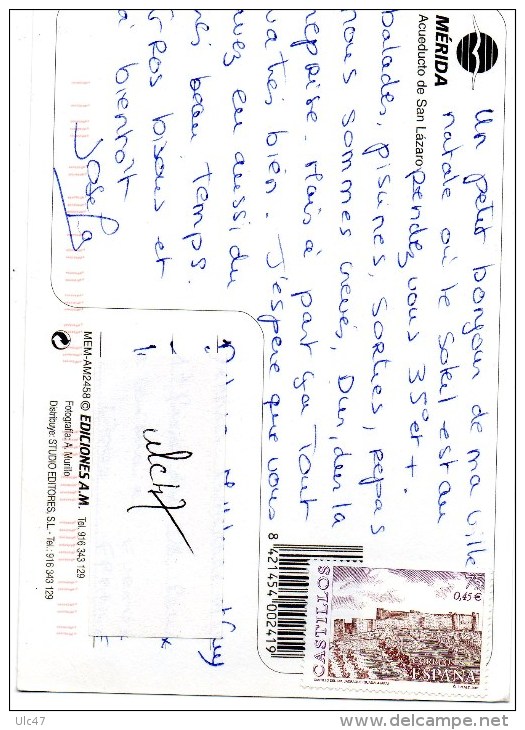 MÉRIDA
Acueducto de San Lázaro
Un petit bonjour de ma ville
natale où le Soleil est au
rendez vous 35° et +.
balades, piscines, sorties, repas
nous sommes crevés, Dur, dur la
reprise. Mais à part ça Tout
va très bien. J'espère que vous
avez eu aussi du
très beau temps.
Gros bisous et
à bientôt
Josefa
MEM-AM2458 © EDICIONES A.M. Tel. 916 343 129
Fotografía: A. Murillo
Distribuye: STUDIO EDITORES, S.L. - Tel.: 916 343 129
ulc47
8 421454 002419
CASTILLOS
0,45 €
CORREOS
ESPAÑA
Ulc47
delcampe.net